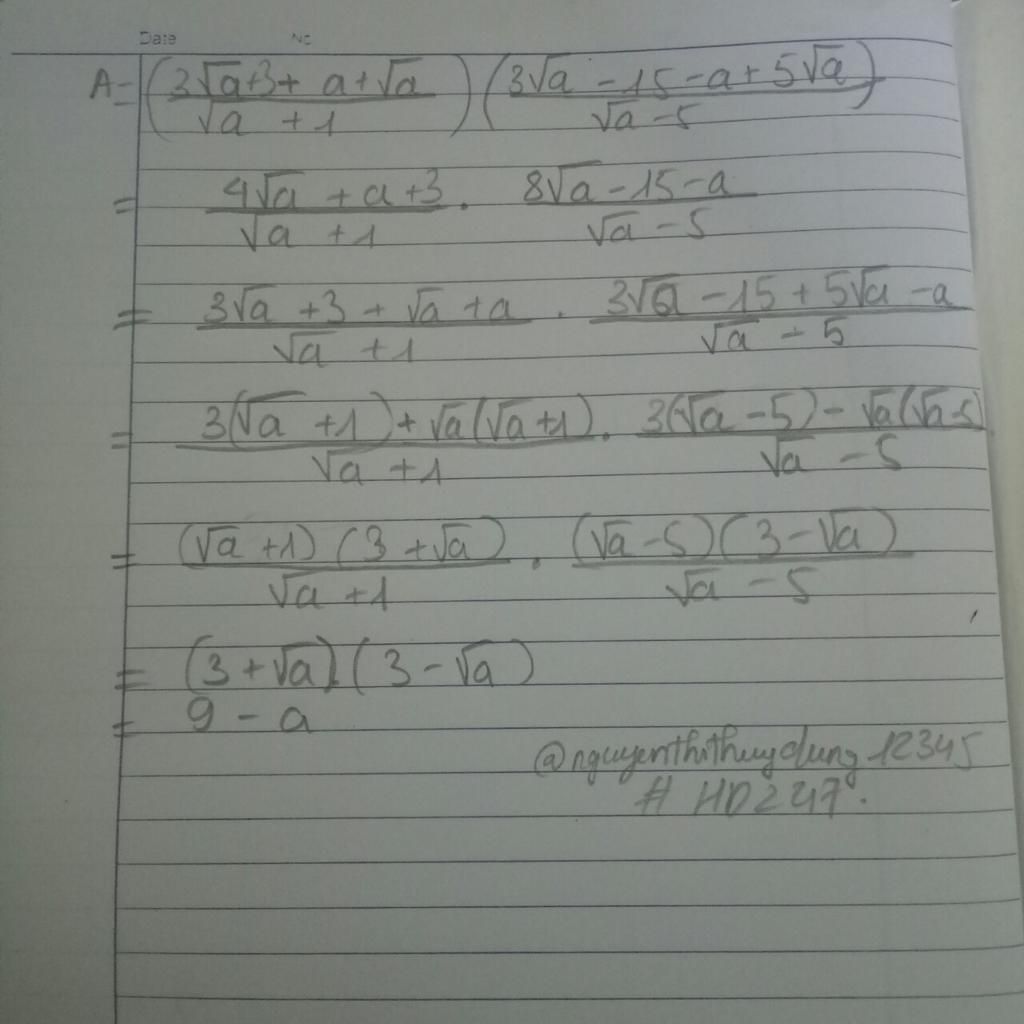 Date No
A = (3√a+3+ a+√a / √a + 1) (3√a - 15 - a + 5√a / √a - 5)
= 4√a + a + 3 / √a + 1 . 8√a - 15 - a / √a - 5
= 3√a + 3 + √a + a / √a + 1 . 3√a - 15 + 5√a - a / √a - 5
= 3(√a + 1) + √a(√a+1) / √a + 1 . 3(√a - 5) - √a(√a-5) / √a - 5
= (√a + 1) (3 + √a) / √a + 1 . (√a - 5)(3 - √a) / √a - 5
= (3 + √a).(3 - √a)
= 9 - a
@nguyenthithuydung12345
# HD247.